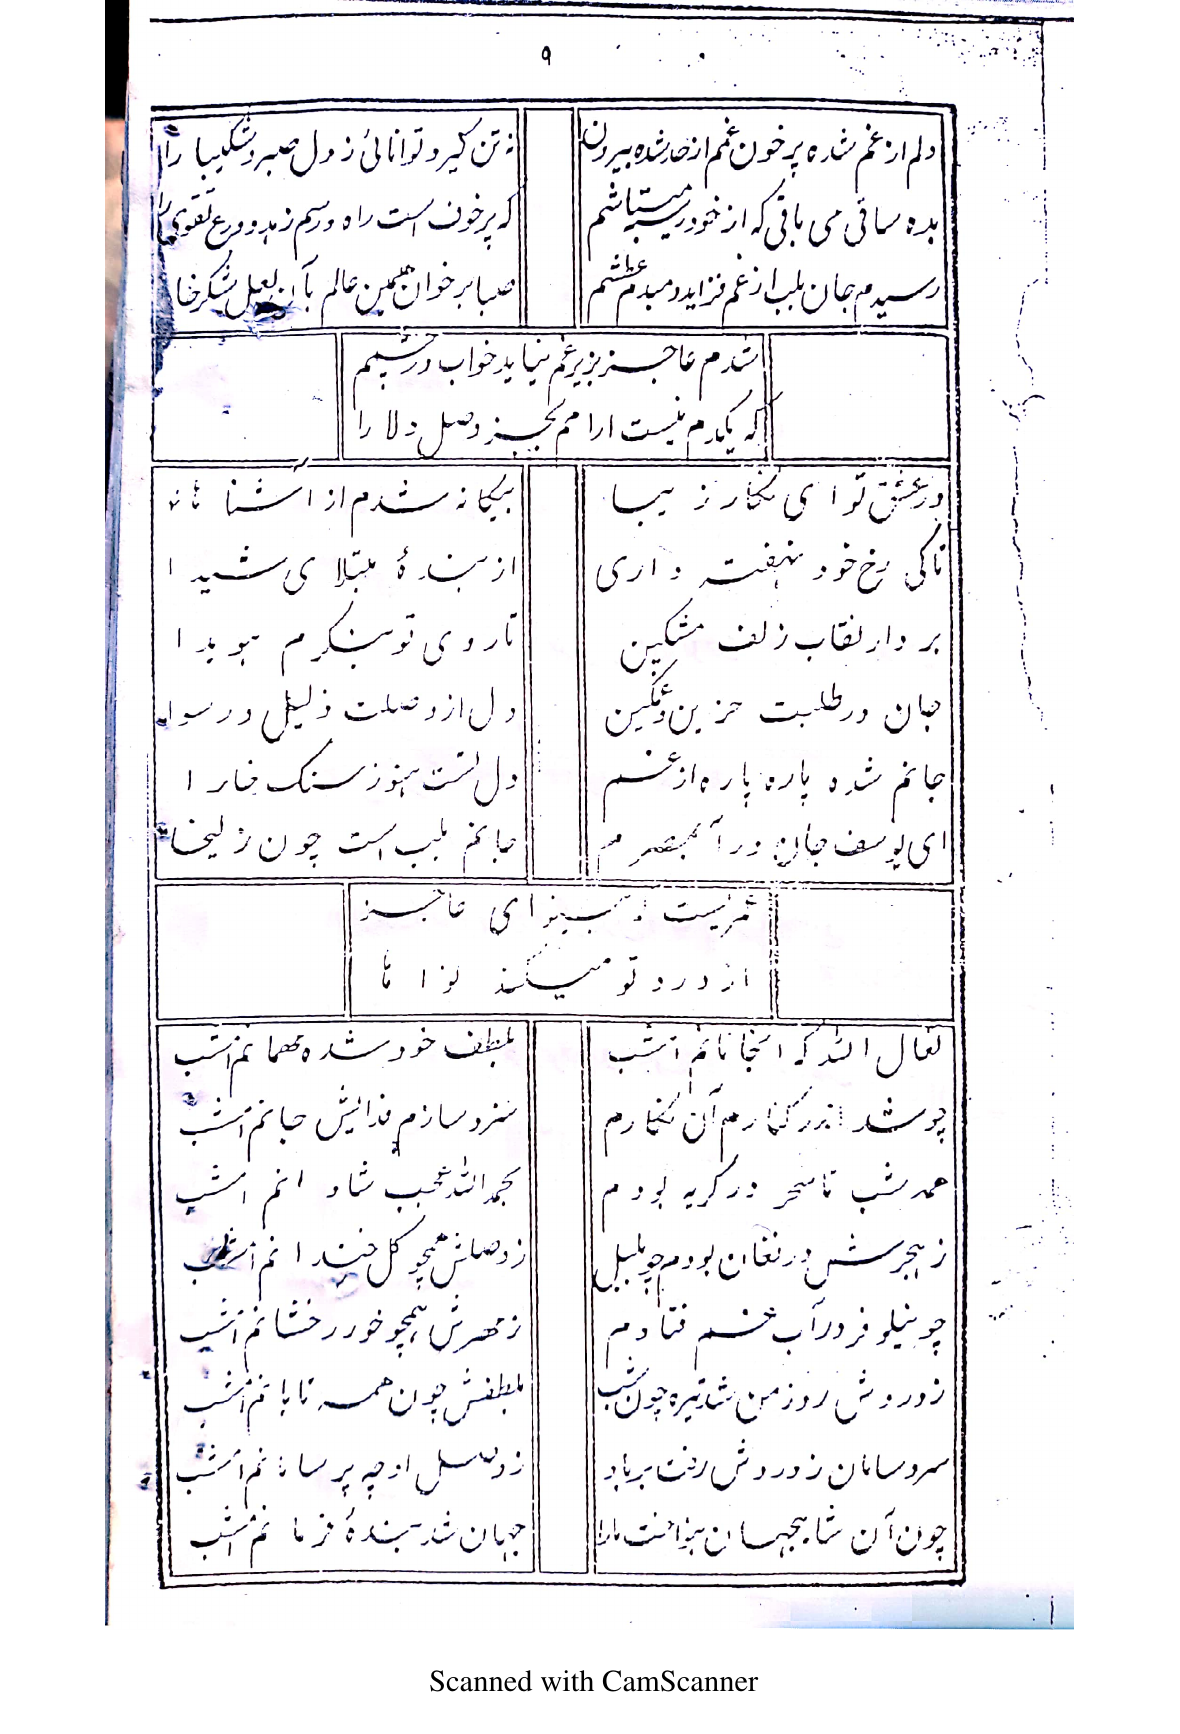 ۹
دلم از غم شده پر خون غمم از حد شده بیرون
نه تن گیرد توانائی ز دل صبر و شکیبا را
بده ساقی می باقی که از خود
که پر خون است راه و رسم زهد و ورع تقوی را
رسیدم جان بلب از غم فزاید دمبدم عطشم
صبا بر خوان همین عالم بآن لعل شکرخا
شدم عاجز بزیر غم نیاید خواب در چشمم
که یکدم نیست آرامم بجز وصل دلارا
در عشق تو ای نگار زیبا
بیگانه شدم از آشناها
تا کی رخ خود نهفته داری
از بندهٔ مبتلای شیدا
بردار نقاب زلف مشکین
تا روی تو بنگرم هویدا
جان در طلبت حزین و غمگین
دل از وصلت ذلیل و رسوا
جانم شده پاره پاره از غم
دل تست هنوز سنگ خارا
ای یوسف جان درآ بمصرم
جانم بلب است چون زلیخا
عمریست که بینوای عاجز
از درد تو میکند نوا ها
تعال الله که اینجا نانم امشب
بلطف خود شده مهمانم امشب
چو شد اندر کنارم آن نگارم
سزد سازم فدایش جانم امشب
همه شب تا سحر در گریه بودم
بحمدالله عجب شادانم امشب
ز هجرش در فغان بودم چو بلبل
ز وصلش همچو گل خندانم امشب
چو نیلوفر در آب غم فتادم
ز مهرش همچو خور رخشانم امشب
ز دردش روز من شد تیره چون شب
بلطفش چون مه تابانم امشب
سر و سامان ز دردش رفت بر باد
ز وصل او چه پر سامانم امشب
چون آن شاهجهان بنواخت ما را
جهان شد بندهٔ فرمانم امشب
Scanned with CamScanner